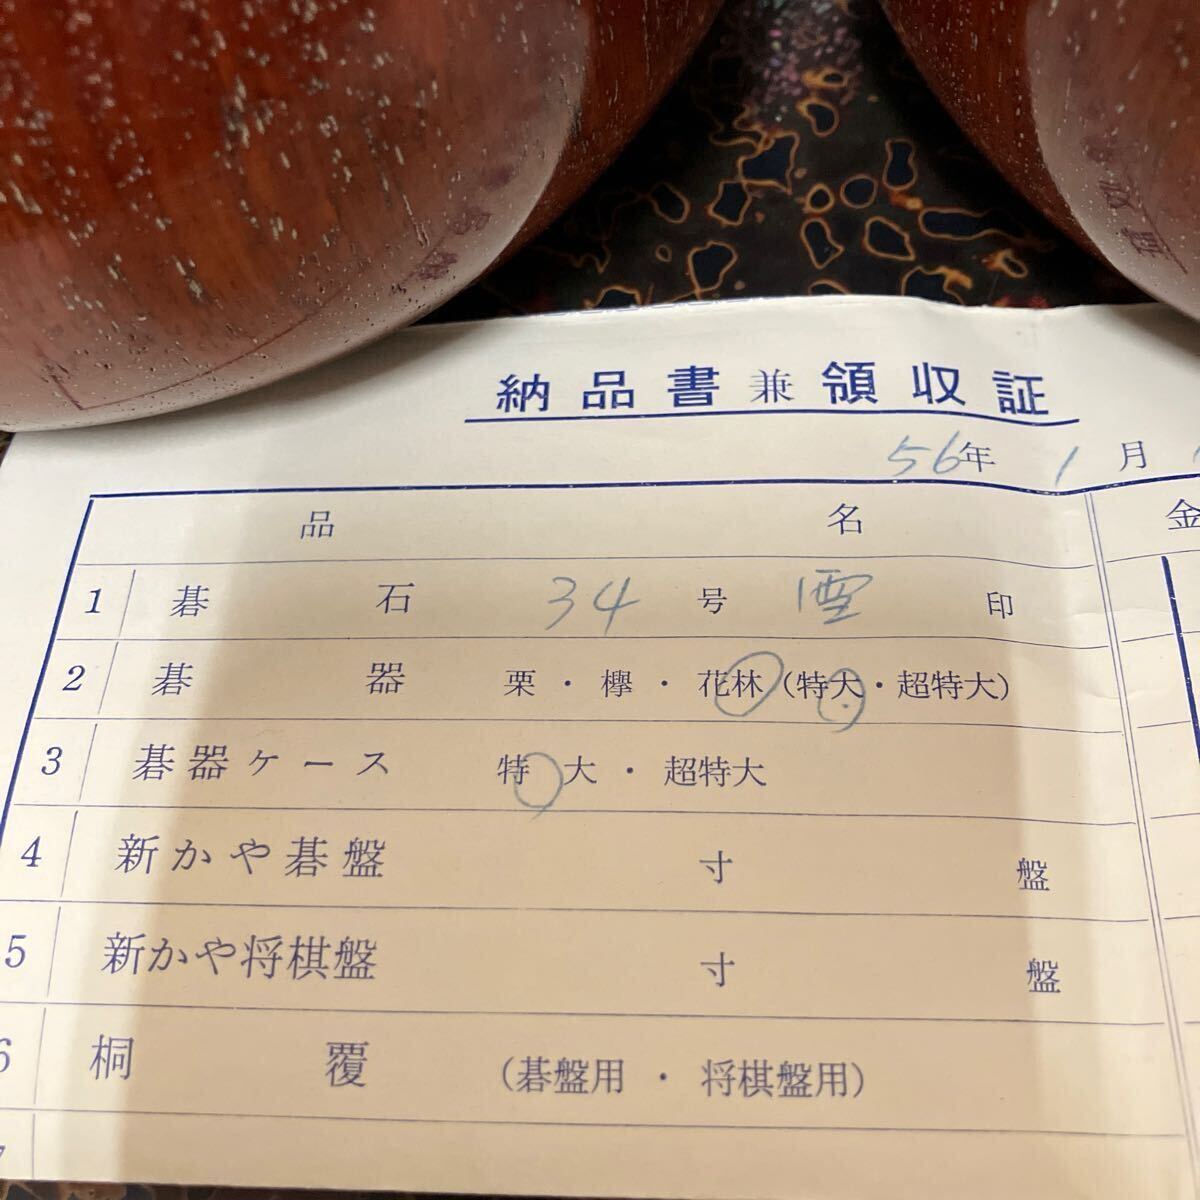 納品書兼領収証
56年 1月
品名 金
1 碁石 34号 雪印
2 碁器 栗・欅・花林(特大・超特大)
3 碁器ケース 特大・超特大
4 新かや碁盤 寸 盤
5 新かや将棋盤 寸 盤
6 桐覆 (碁盤用・将棋盤用)
7